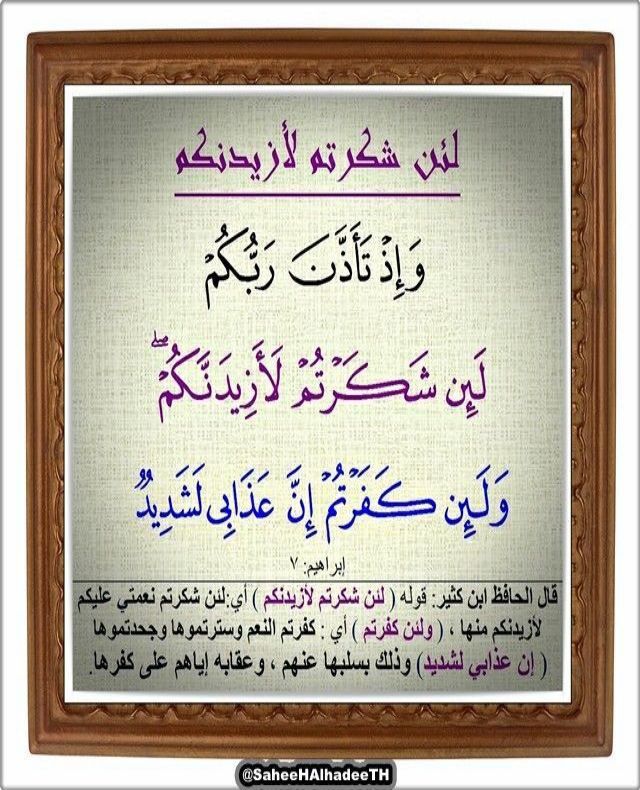 لئن شكرتم لأزيدنكم
وَإِذْ تَأَذَّنَ رَبُّكُمْ
لَئِن شَكَرْتُمْ لَأَزِيدَنَّكُمْ ۖ
وَلَئِن كَفَرْتُمْ إِنَّ عَذَابِى لَشَدِيدٌ
إبراهيم: ٧
قال الحافظ ابن كثير: قوله ( لئن شكرتم لأزيدنكم ) أي:لئن شكرتم نعمتي عليكم
لأزيدنكم منها ، ( ولئن كفرتم ) أي : كفرتم النعم وسترتموها وجحدتموها
( إن عذابي لشديد) وذلك بسلبها عنهم ، وعقابه إياهم على كفرها.
@SaheeHAlhadeeTH